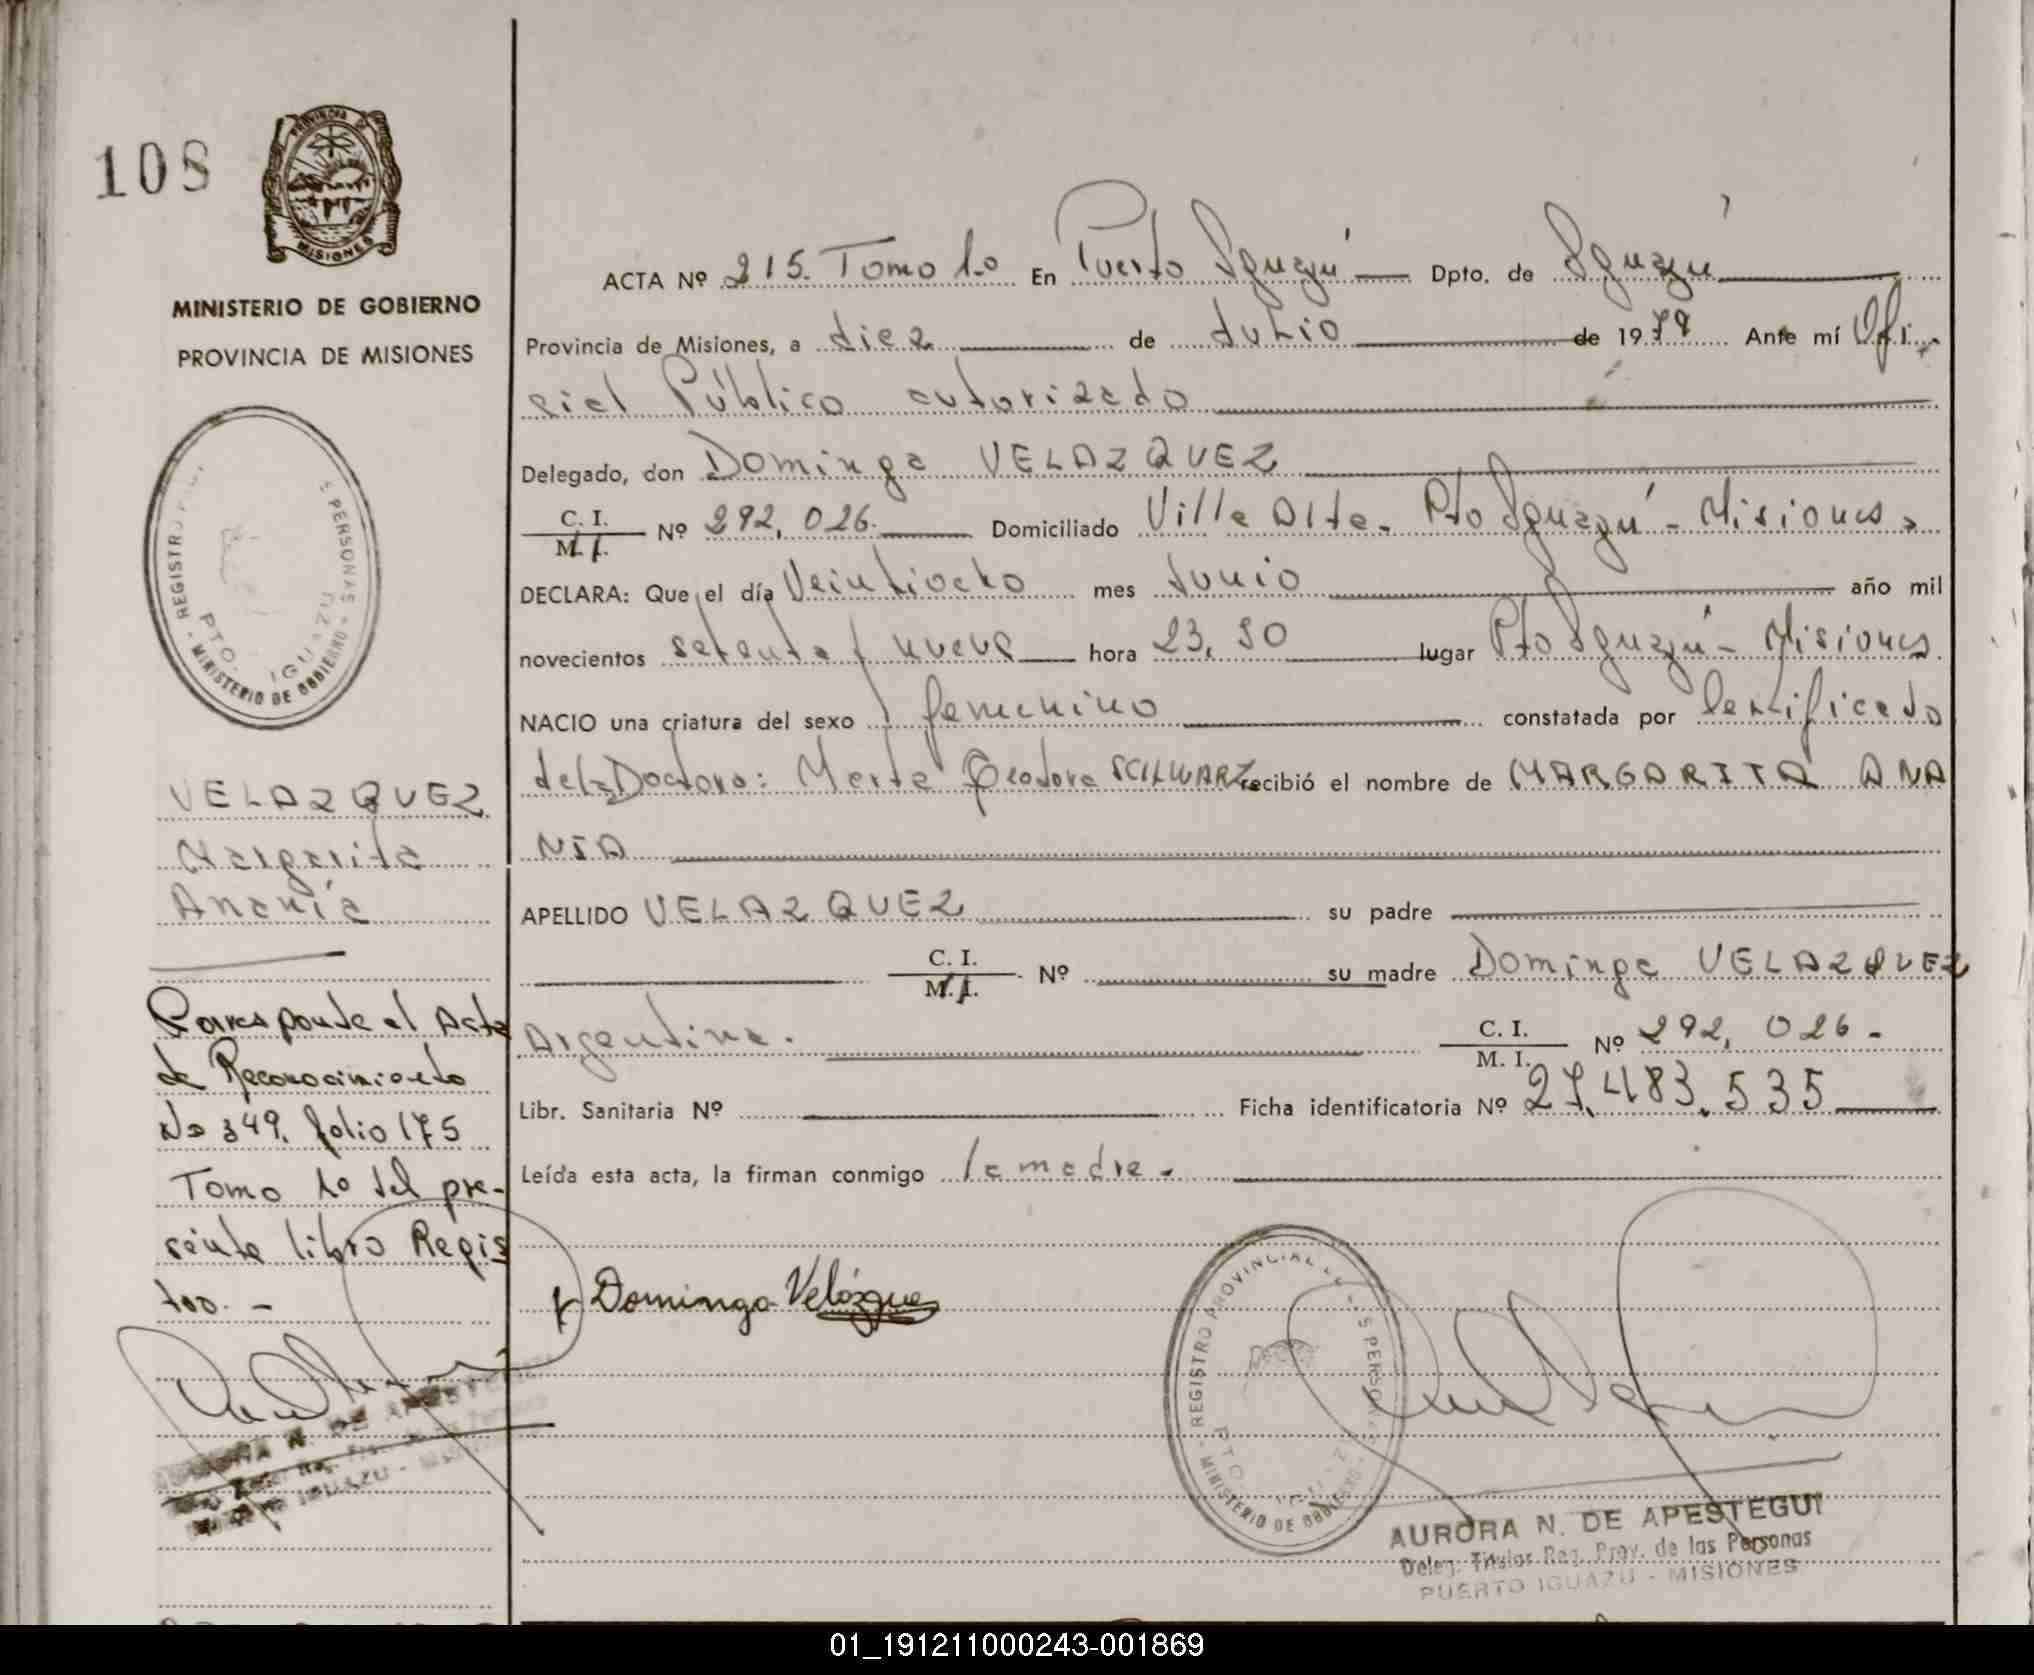 108
PROVINCIA DE
MISIONES
MINISTERIO DE GOBIERNO
PROVINCIA DE MISIONES
REGISTRO
S PERSONAS
MINISTERIO DE GOBIERNO
PTO. IGUAZU
VELAZQUEZ
Margarita
Ananía
Corresponde el Acta
de Reconocimiento
No 349. folio 175
Tomo 1º del pre-
sente libro Regis
tro. -
ACTA Nº 215. Tomo 1.o En Puerto Iguazú Dpto. de Iguazú
Provincia de Misiones, a diez de Julio de 1979 Ante mí Ofi.
cial Público autorizado
Delegado, don Dominga VELAZQUEZ
C. I. / M. I. Nº 292.026. Domiciliado Villa Alta. Pto Iguazú - Misiones.
DECLARA: Que el día Veintiocho mes Junio año mil
novecientos setenta y nueve hora 23,30 lugar Pto Iguazú - Misiones
NACIO una criatura del sexo femenino constatada por Certificado
de la Doctora: Marta Teodora SCHWARZ recibió el nombre de MARGARITA ANA
NIA
APELLIDO VELAZQUEZ su padre
C. I. / M. I. Nº su madre Dominga VELAZQUEZ
Argentina. C. I. / M. I. Nº 292.026.-
Libr. Sanitaria Nº Ficha identificatoria Nº 27.483.535
Leída esta acta, la firman conmigo la madre.
Dominga Velázquez
REGISTRO PROVINCIAL
S PERSONAS
MINISTERIO DE GOBIERNO
PTO.
AURORA N. DE APESTEGUI
Deleg. Titular Reg. Prov. de las Personas
PUERTO IGUAZU - MISIONES
N. DE APESTEGUI
IGUAZU -
01_191211000243-001869